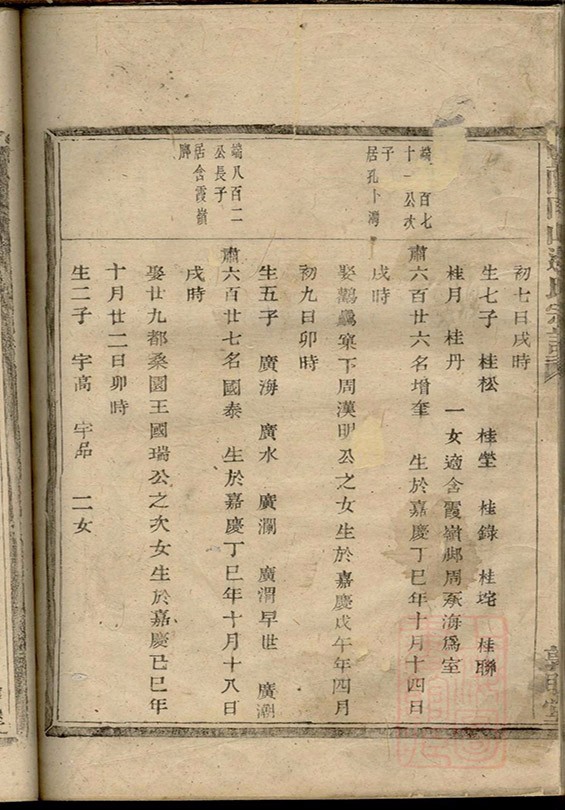 初七日戌時
生七子 桂松 桂瑩 桂錄 桂垞 桂聯
桂月 桂丹 一女適含霞嶺鄁周承海爲室
端 百七
十一公次
子
居孔卜灣
肅六百廿六名增奎 生於嘉慶丁巳年十月十四日
戌時
娶鸕鷀寨下周漢明公之女生於嘉慶戊午年四月
初九日卯時
生五子 廣海 廣水 廣瀾 廣渭早世 廣潮
端八百二
公長子
居含霞嶺
脾
肅六百廿七名國泰 生於嘉慶丁巳年十月十八日
戌時
娶廿九都桑園王國瑞公之次女生於嘉慶己巳年
十月廿二日卯時
生二子 宇高 宇品 二女
氏宗譜